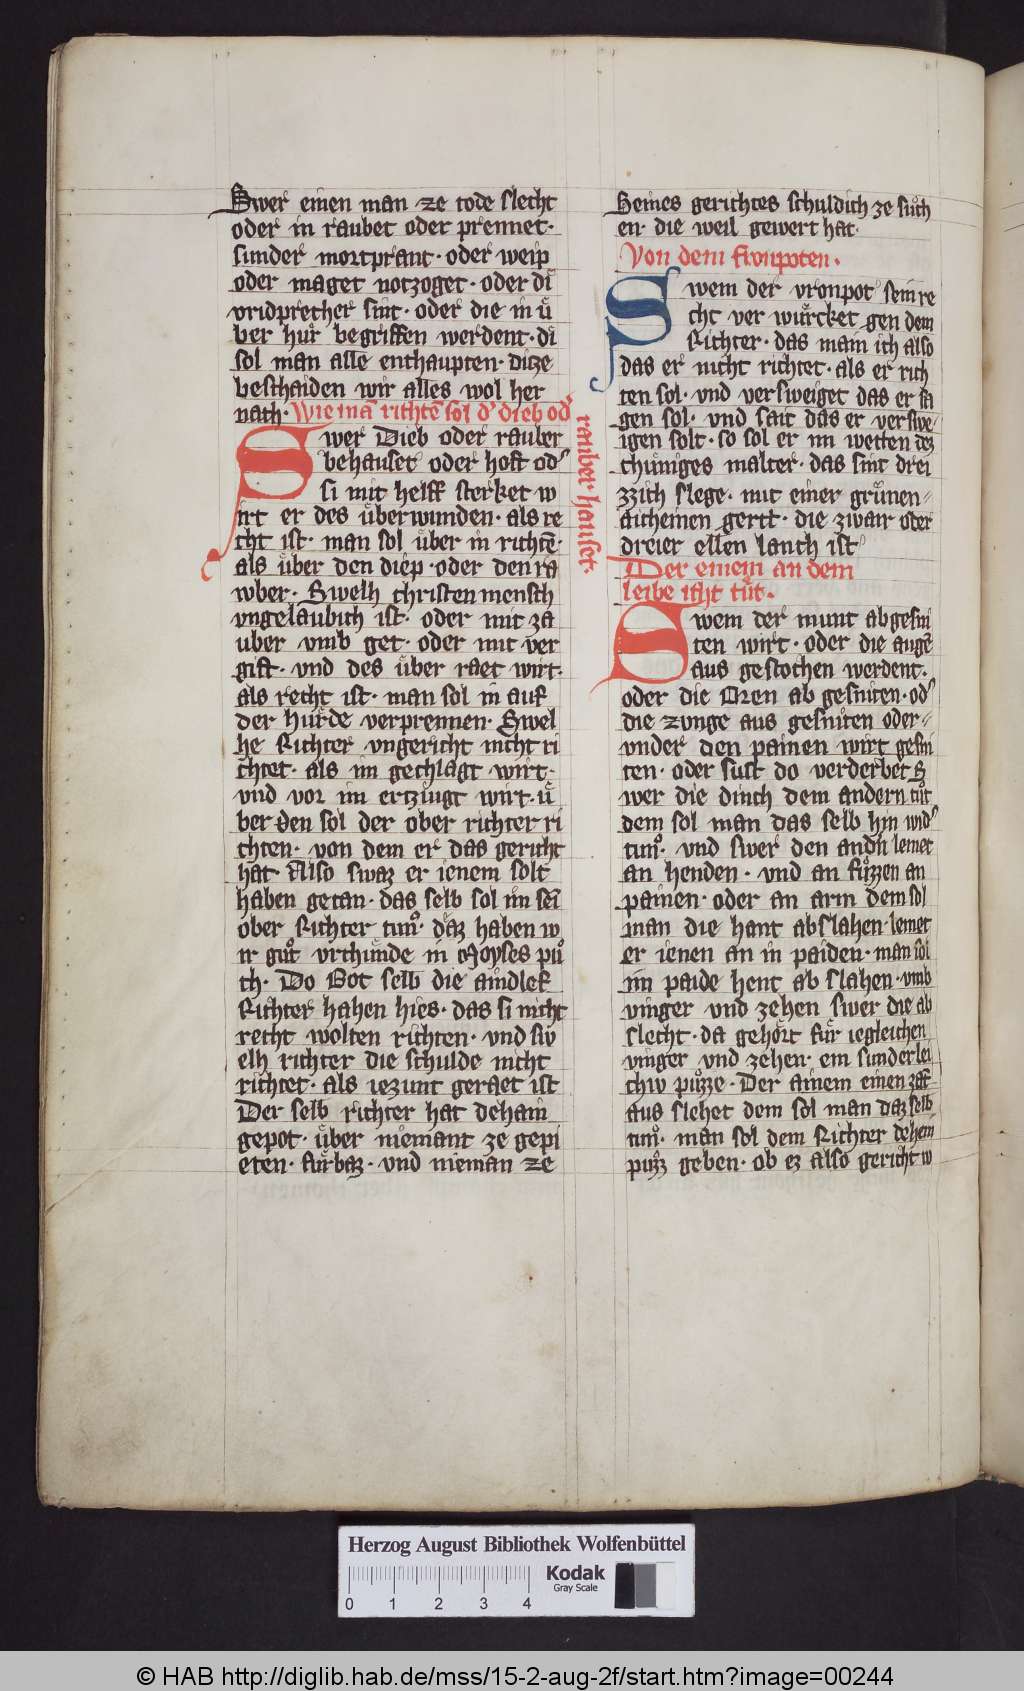 Swer einen man ze tode slecht
oder in raubet oder prennet·
sunder mortprant· oder weip
oder maget notzoget· oder di
vridprecher sint· oder die in ů
ber hůr begriffen werdent· di
sol man alle enthaupten· ditze
beschaiden wir alles wol her
nach· Wie mā richtē sol dˀ dieb odˀ
rauber· hauset·
Swer Dieb oder rauber
behauset oder hoft odˀ
si mit helff sterket w
irt er des ůberwunden· als re
cht ist· man sol ůber in richtē·
als ůber den diep· oder den ra
wber· Swelh christen mensch
vngelaubich ist· oder mit za
uber vmb get· oder mit ver
gift· vnd des ůber raet wirt·
als recht ist· man sol in auf
der hůrde verprennen· Swel
he Richter vngericht nicht ri
chtet· als im gechlagt wirt·
vnd vor im ertzůigt wirt· ů
ber den sol der ober richter ri
chten· von dem er das gericht
hat· Also swaz er ienem solt
haben getan· das selb sol im sei
ober Richter tunͦ· daz haben w
ir gůt vrchůnde in Moyses pů
ch· Do Got selb die aindlef
Richter hahen hies· das si nicht
recht wolten richten· vnd sw
elh richter die schulde nicht
richtet· als iezunt geraet ist
Der selb richter hat dehain
gepot· ůber niemant ze gepi
eten· fůrbaz· vnd nieman ze
Seines gerichtes schuldich ze sůch
en· die weil gewert hat·
Von dem fronpoten·
Swem der vronpot sein re
cht ver wůrcket gen dem
Richter· das main ich also
das er nicht richtet· als er rich
ten sol· vnd versweiget das er sa
gen sol· vnd sait das er verswe
igen solt· so sol er im wetten dez
chůniges malter· das sint drei
zzich slege· mit einer grůnen
aicheinen gert· die zwair oder
dreier ellen lanch ist
Der einem an dem
leibe icht tůt·
Swem der munt abgesni
ten wirt· oder die augē
aus gestochen werdent·
oder die Oren ab gesniten· odˀ
die zunge aus gesniten oder
vnder den painen wirt gesni
ten· oder sust do verderbet S
wer die dinch dem andern tůt
dem sol man das selb hin widˀ
tunͦ· vnd swer den andn lemet
an henden· vnd an fůzzen an
painen· oder an arm dem sol
man die hant abslahen· lemet
er ienen an in paiden· man sol
im paide hent ab slahen· vmb
vinger vnd zehen swer die ab
slecht· da gehört fůr iegleichen
vinger vnd zehen· ein sunderlei
chw půzze· Der ainem einen zan
aus slehet dem sol man daz selb
tunͦ· man sol dem Richter dehein
půzz geben· ob ez also gericht w
Herzog August Bibliothek Wolfenbüttel
0 1 2 3 4
Kodak
Gray Scale
© HAB http://diglib.hab.de/mss/15-2-aug-2f/start.htm?image=00244